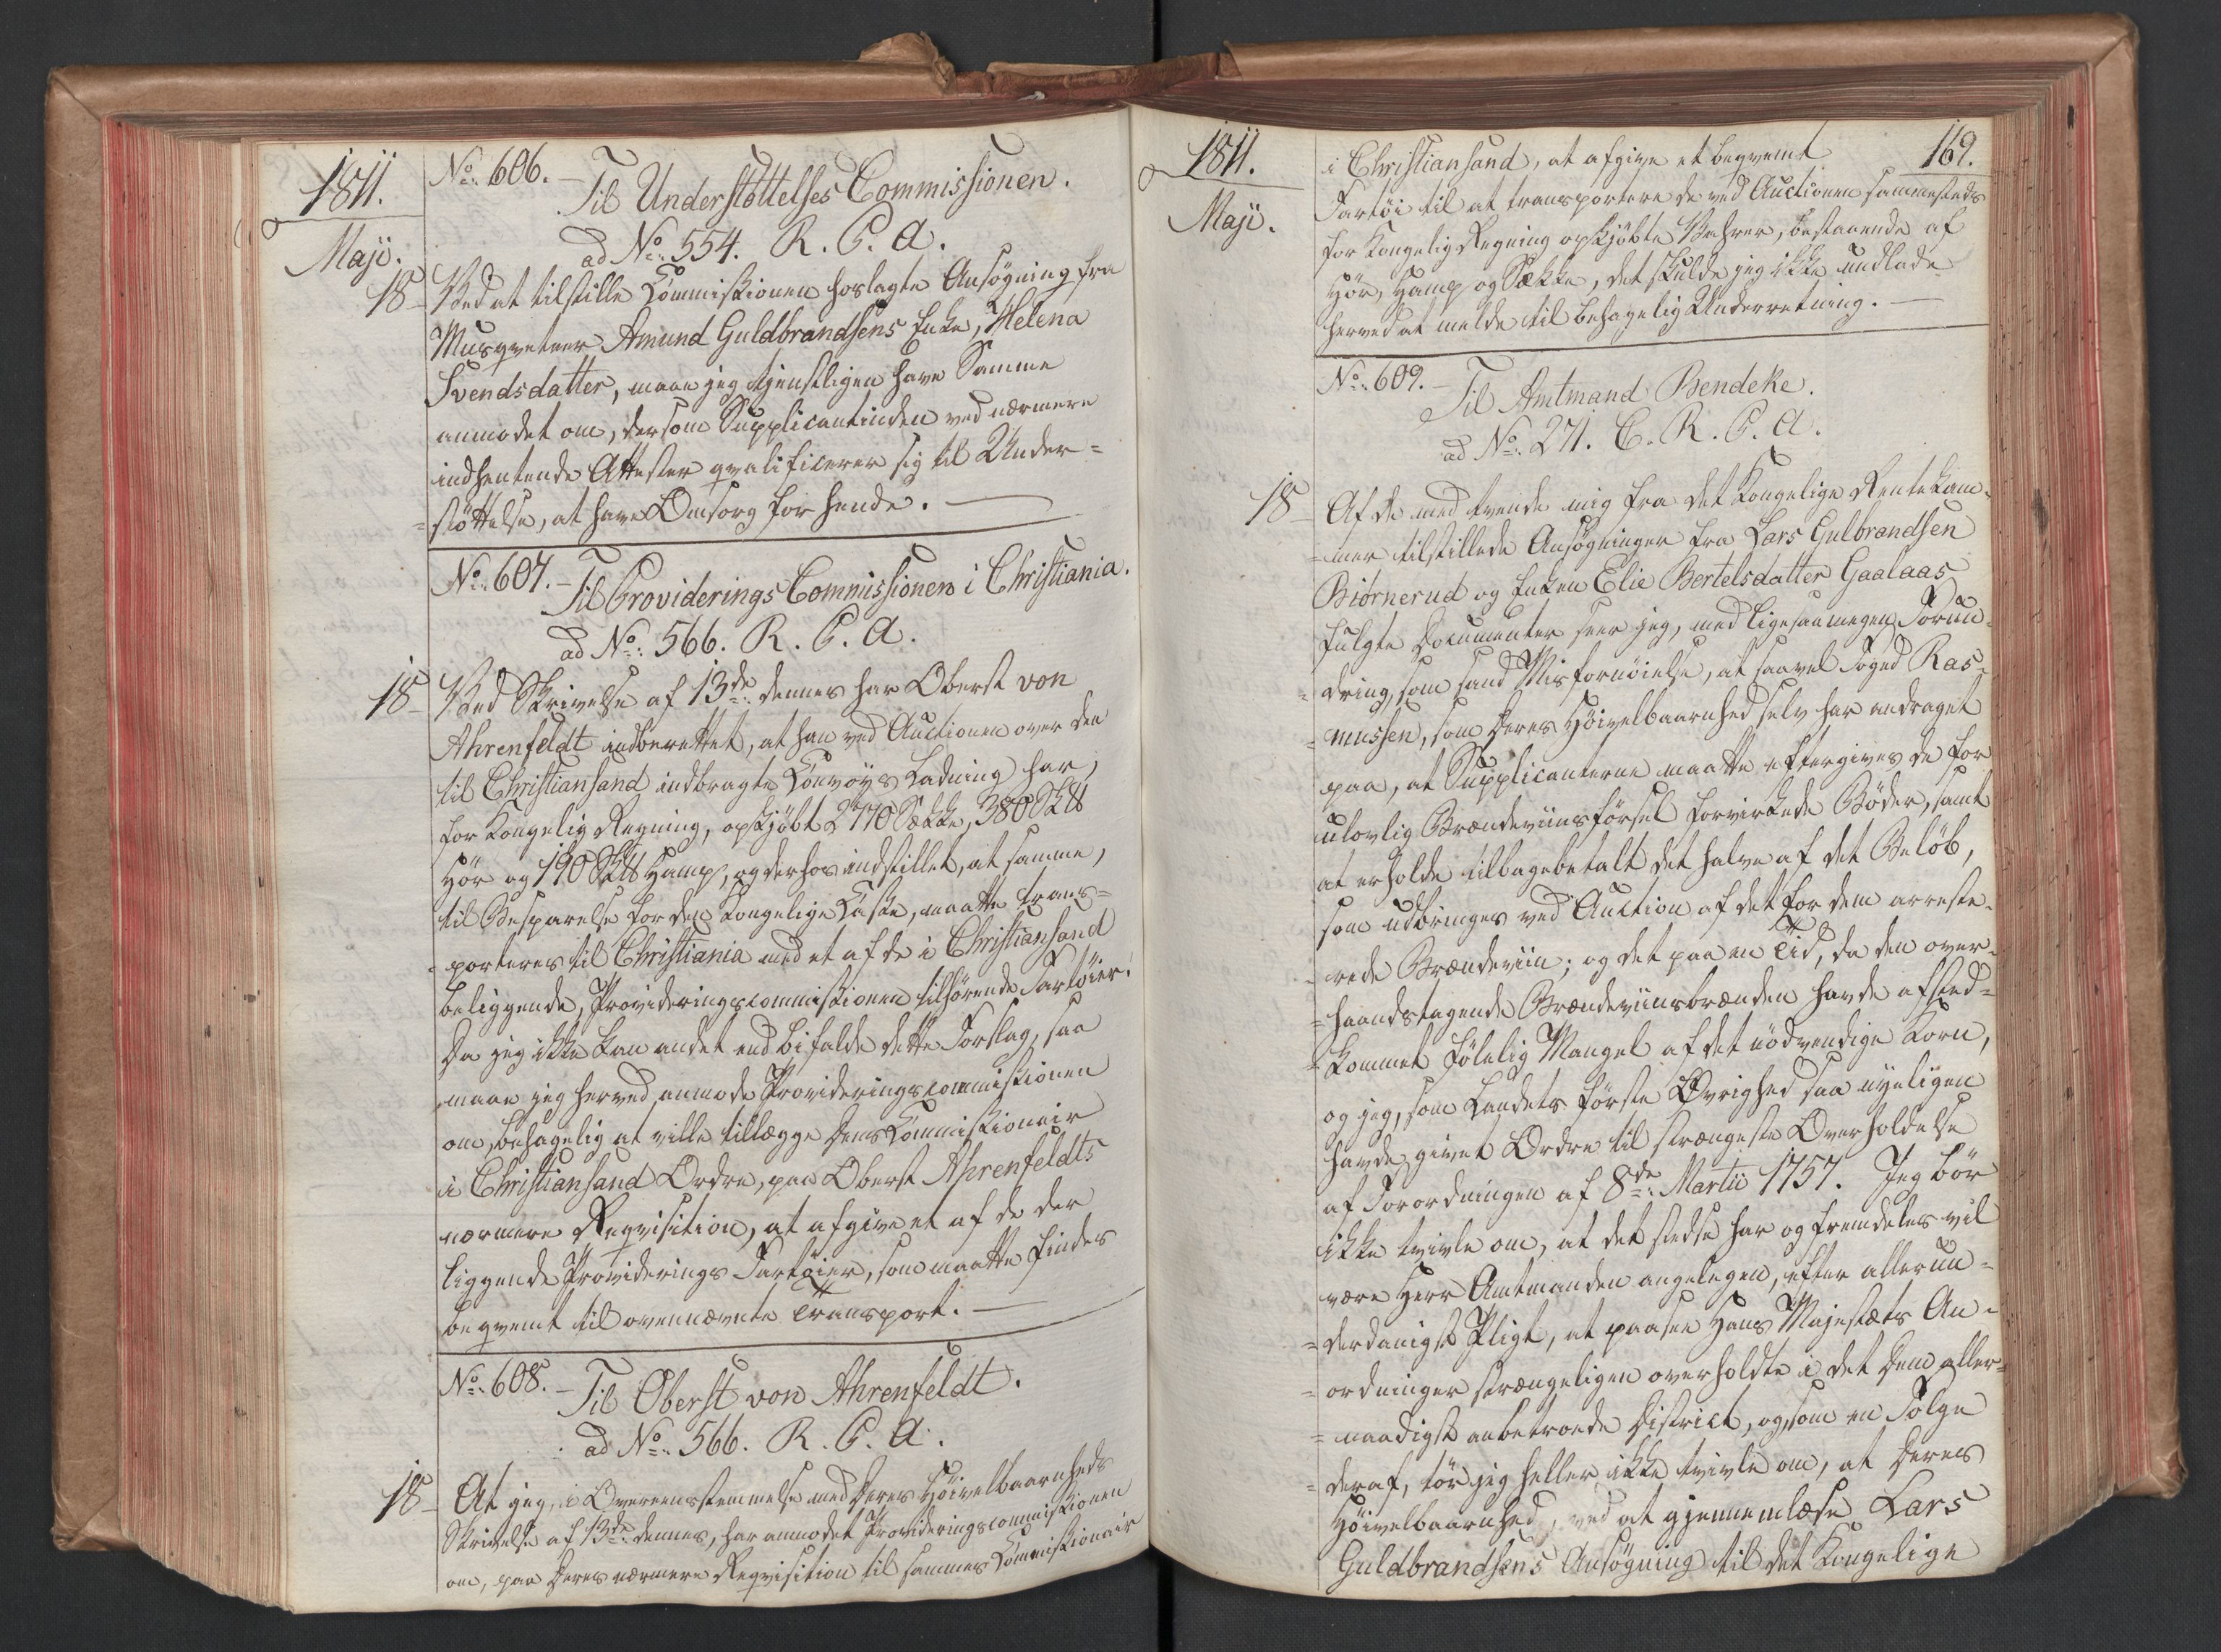 1811.
Maji.
No. 606. – Til Understøttelses Commissionen.
ad No. 554. R. P. A.
18 – Ved at tilstille Commissionen hoslagte Ansøgning fra
Musqveteer Amund Guldbrandsens Enke, Helena
Svendsdatter, maae jeg tjenstligen have Samme
anmodet om, dersom Supplicantinden ved nærmere
indhentende Attester qvalificerer sig til Under=
=støttelse, at have Omsorg for hende. –
No. 607. – Til Providerings Commissionen i Christiania.
ad No. 566. R. P. A.
18 – Ved Skrivelse af 13de dennes har Oberst von
Ahrenfeldt indberettet, at han ved Auctionen over den
til Christiansand indbragte Convoys Ladning har,
for Kongelig Regning, opkjøbt 2770 Sække, 380 Sk℔
Hør og 190 Sk℔ Hamp, og derhos indstillet, at samme,
til Besparelse for den Kongelige Casse, maatte trans=
=porteres til Christiania med et af de i Christiansand
beliggende, Provideringscommissionen tilhørende Fartøier.
Da jeg ikke kan andet end bifalde dette Forslag, saa
maae jeg herved anmode Provideringscommissionen
om, behagelig at ville tillægge dens Commissionair
i Christiansand Ordre, paa Oberst Ahrenfeldts
nærmere Reqvisition, at afgive et af de der
liggende Providerings Fartøier, som maatte findes
beqvemt til ovennævnte Transport. –
No. 608. – Til Oberst von Ahrenfeldt.
ad No. 566. R. P. A.
18 – At jeg, i Overeensstemmelse med Deres Høivelbaarnheds
Skrivelse af 13de dennes, har anmodet Provideringscommissionen
om, paa Deres nærmere Reqvisition til sammes Commissionair
1811.
169.
Maji.
i Christiansand, at afgive et beqvemt
Fartøi til at transportere de ved Auctionen sammesteds
for Kongelig Regning opkjøbte Vahrer, bestaaende af
Hør, Hamp og Sække, det skulde jeg ikke undlade
herved at melde til behagelig Underretning. –
No. 609. – Til Amtmand Bendeke.
ad No. 271. C. R. P. A.
18 – Af de med tvende mig fra det Kongelige Rentekam=
=mer tilstillede Ansøgninger fra Lars Gulbrandsen
Biørnerud og Enken Elie Bertelsdatter Gaalaas
fulgte Documenter seer jeg, med ligesaa megen Forun=
=dring, som sand Misfornøielse, at saavel Foged Ras=
=mussen, som Deres Høivelbaarnhed selv har andraget
paa, at Supplicanterne maatte eftergives de for
ulovlig Brændeviinsførsel forvirkede Bøder, samt
at erholde tilbagebetalt det halve af det Beløb,
som udbringes ved Auction af det for dem arreste=
=rede Brændeviin; og det paa en Tid, da den over=
=haandtagende Brændeviinsbrænden havde afsted=
=kommet følelig Mangel af det nødvendige Korn,
og jeg, som Landets første Øvrighed saa nyeligen
havde givet Ordre til strængeste Overholdelse
af Forordningen af 8de Martii 1757. Jeg bør
ikke tvivle om, at det stedse har og fremdeles vil
være Herr Amtmanden angelegen, efter allerun=
=derdanigst Pligt, at paasee Hans Majestæts An=
=ordninger strængeligen overholdte i det Dem aller=
=naadigst anbetroede District, og, som en Følge
=deraf, tør jeg heller ikke tvivle om, at Deres
Høivelbaarnhed, ved at gjennemlæse Lars
Guldbrandsens Ansøgning til det Kongelige